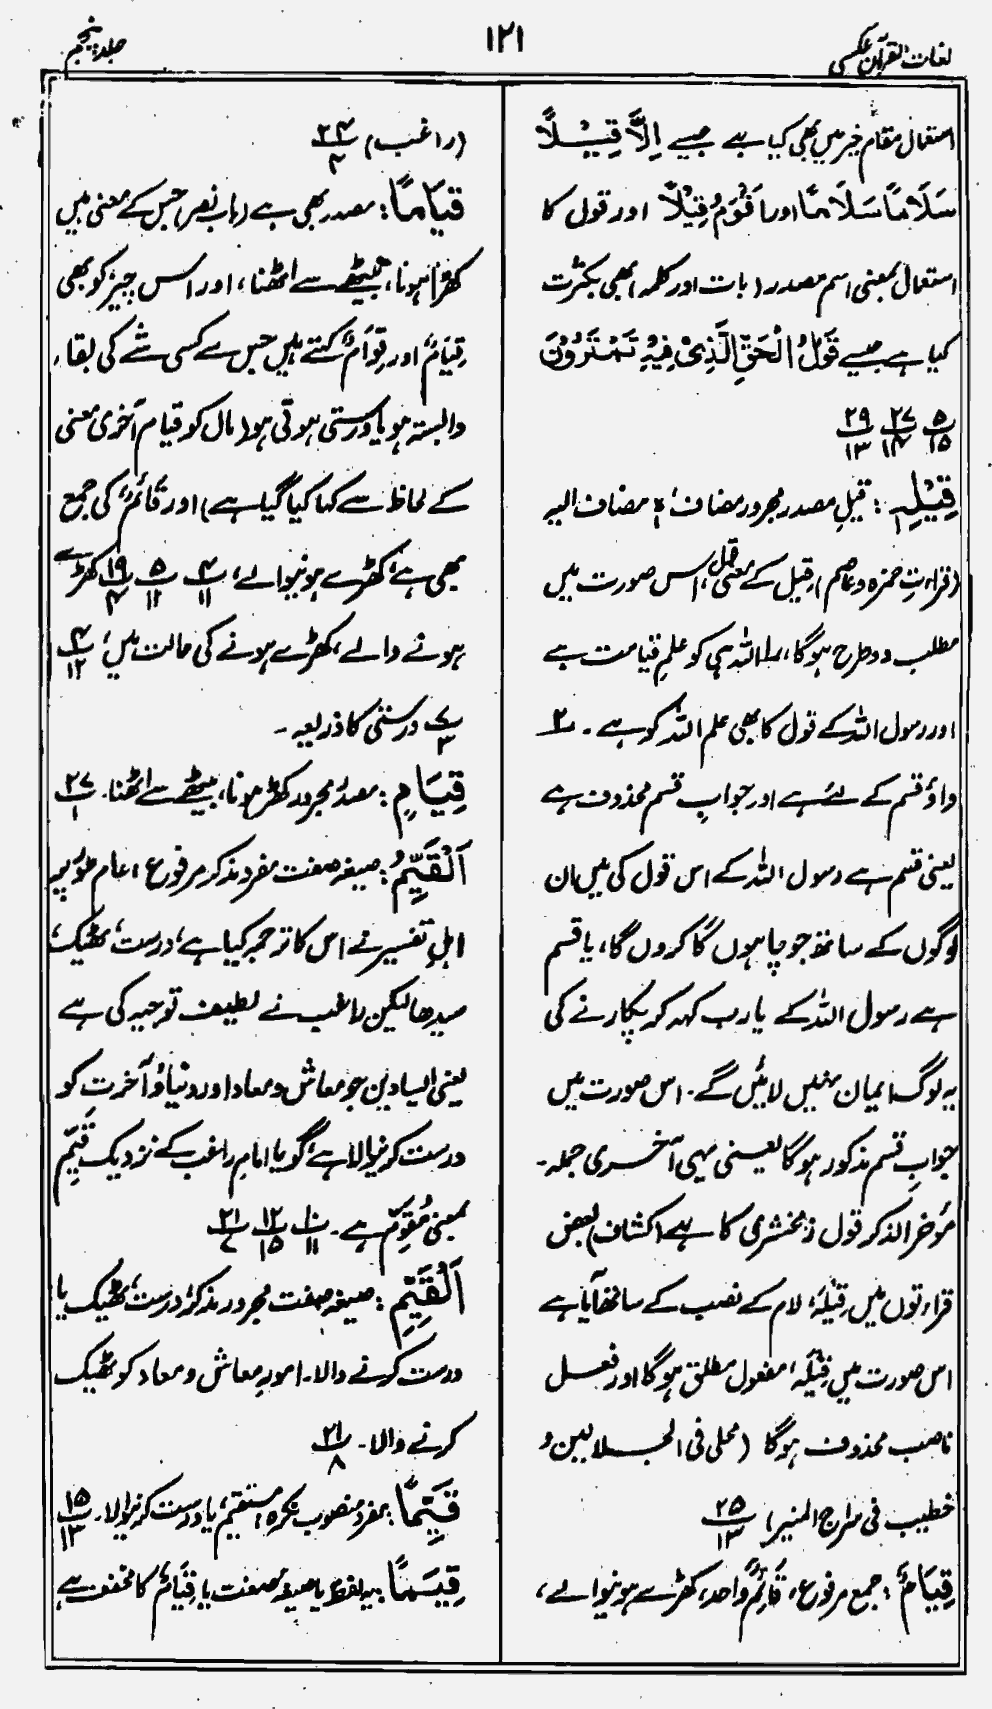 لغات القرآن عکسی
۱۲۱
جلد پنجم
استعمال مقام خبر میں بھی کیا ہے جیسے اِلَّا قِیْلًا
سَلَامًا سَلَامًا اور اَقْوَمُ قِیْلًا اور قول کا
استعمال بمعنی اسم مصدر (بات اور کلمہ) بھی بکثرت
کیا ہے جیسے قَوْلُ الْحَقِّ الَّذِیْ فِیْهِ تَمْتَرُوْنَ
۵/۱۵ ۲۷/۱۴ ۲۹/۱۳
قِیْلِهٖ: قیلِ مصدر مجرور مضاف، ہٖ مضاف الیہ
(قراءتِ حمزہ و عاصم) قیل کے معنی قول، اس صورت میں
مطلب دو طرح ہوگا، ۱۔ اللہ ہی کو علمِ قیامت ہے
اور رسول اللہ کے قول کا بھی علم اللہ کو ہے۔ ۲
واؤ قسم کے لئے ہے اور جوابِ قسم محذوف ہے
یعنی قسم ہے رسول اللہ کے اس قول کی میں ان
لوگوں کے ساتھ جو چاہوں گا کروں گا، یا قسم
ہے رسول اللہ کے یارب کہہ کر پکارنے کی
یہ لوگ ایمان نہیں لائیں گے۔ اس صورت میں
جوابِ قسم مذکور ہوگا یعنی یہی آخری جملہ۔
مؤخر الذکر قول زمخشری کا ہے (کشاف) بعض
قراءتوں میں قِیْلَهٗ لام کے نصب کے ساتھ آیا ہے
اس صورت میں قِیْلَهٗ مفعول مطلق ہوگا اور فعل
ناصب محذوف ہوگا (محلی فی الجلالین و
خطیب فی سراج المنیر) ۲۵/۱۳
قِیَامٌ: جمع مرفوع، قَائِمٌ واحد، کھڑے ہونیوالے،
(راغب) ۲۴/۴
قِیَامًا: مصدر بھی ہے (باب نصر) جس کے معنی ہیں
کھڑا ہونا، بیٹھے سے اٹھنا، اور اس چیز کو بھی
قِیَامٌ اور قِوَامٌ کہتے ہیں جس سے کسی شے کی بقاء
وابستہ ہو یا درستی ہوتی ہو (مال کو قیام آخری معنی
کے لحاظ سے کہا گیا ہے) اور قَائِمٌ کی جمع
بھی ہے، کھڑے ہونیوالے، ۴/۱۱ ۵/۱۲ ۱۹/۴ کھڑے
ہونے والے، کھڑے ہونے کی حالت میں، ۴/۱۲
۷/۳ درستی کا ذریعہ۔
قِیَامٍ: مصدر مجرور کھڑا ہونا، بیٹھے سے اٹھنا۔ ۲۷/۱
اَلْقَیِّمُ: صیغہ صفت مفرد مذکر مرفوع، عام طور پر
اہلِ تفسیر نے اس کا ترجمہ کیا ہے، درست، ٹھیک،
سیدھا لیکن راغب نے لطیف توجیہ کی ہے
یعنی ایسا دین جو معاش و معاد اور دنیا و آخرت کو
درست کرنیوالا ہے، گویا امام راغب کے نزدیک قَیِّم
بمعنی مُقَوِّم ہے۔ ۱۰/۱۱ ۱۲/۱۵ ۲۱/۷
اَلْقَیِّمِ: صیغہ صفت مجرور مذکر، درست، ٹھیک یا
درست کرنے والا۔ امورِ معاش و معاد کو ٹھیک
کرنے والا۔ ۲۱/۸
قَیِّمًا: مفرد منصوب نکرہ، مستقیم، یا درست کرنیوالا۔ ۱۵/۱۳
قِیَمًا: یہ لفظ یا صیغہ صفت یا قِیَامٌ کا مخفف ہے